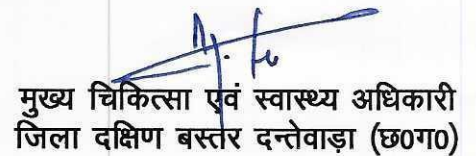 मुख्य चिकित्सा एवं स्वास्थ्य अधिकारी
जिला दक्षिण बस्तर दन्तेवाड़ा (छ0ग0)